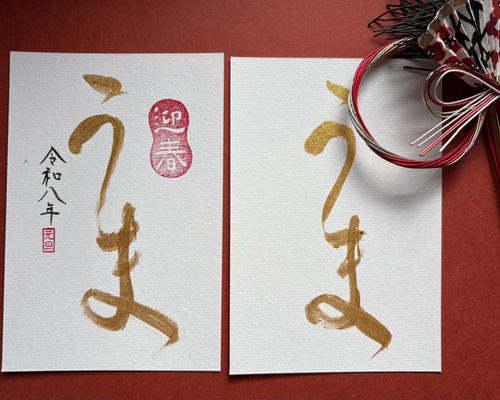 うま
迎春
令和八年
元旦
うま